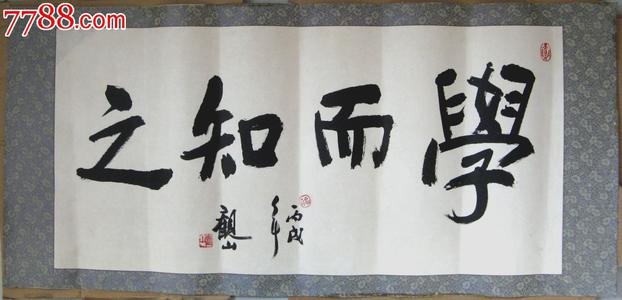 7788.com
學而知之
丙戌
年
觀山